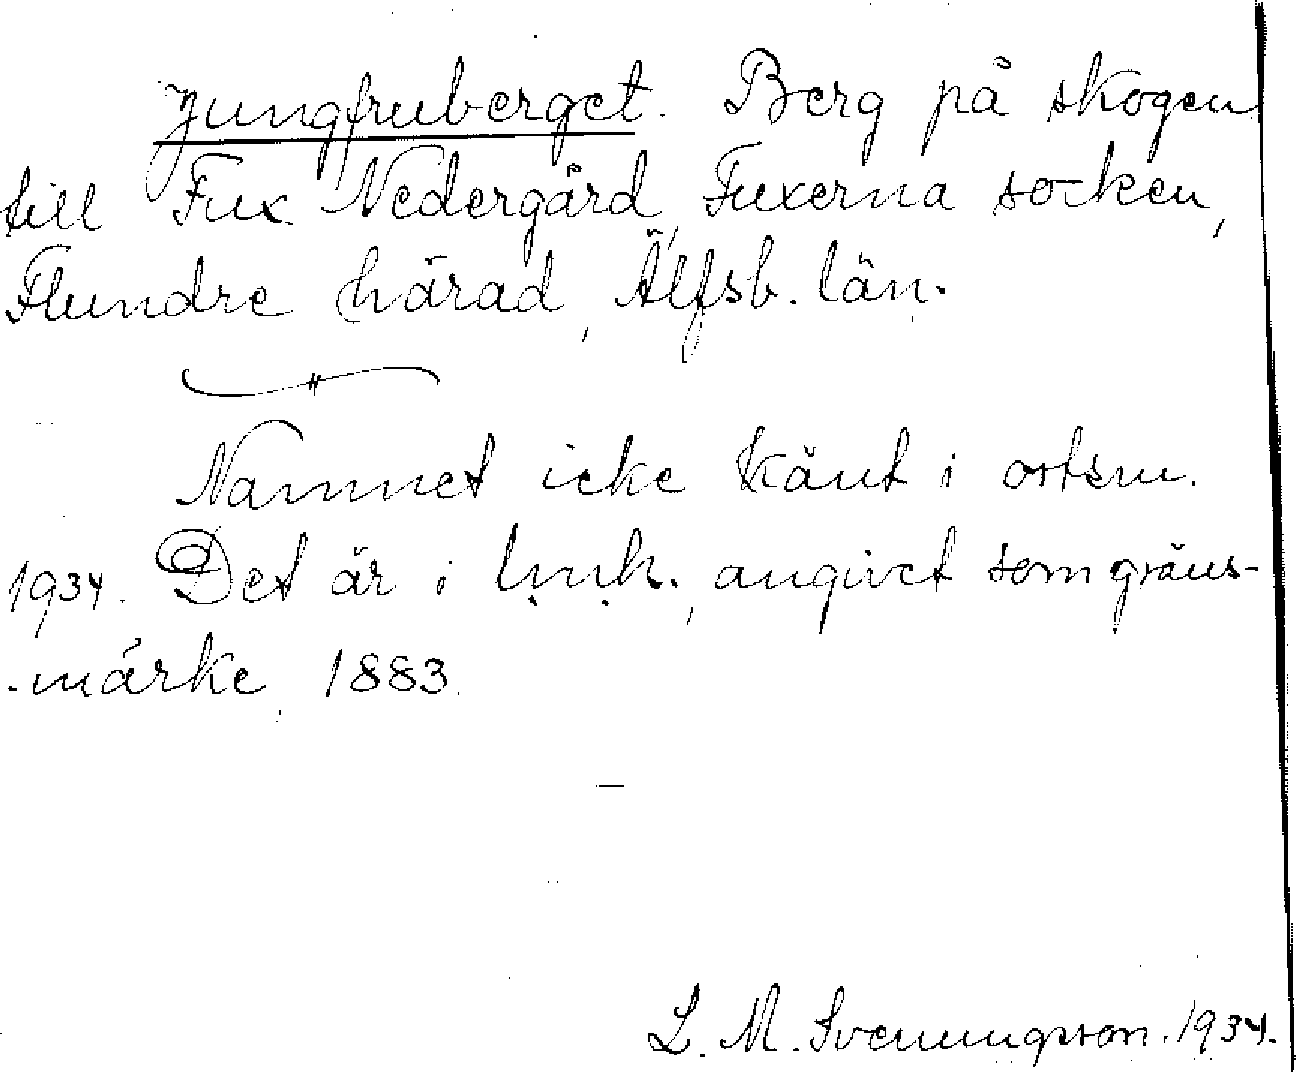 Jungfruberget. Berg på skogen
till Fux Nedergård, Fuxerna socken,
Flundre härad, Älfsb. län.
Namnet icke känt i ortsn.
1934. Det är i lmh., angivet som gräns-
-märke 1883.
L. M. Svenungsson. 1934.